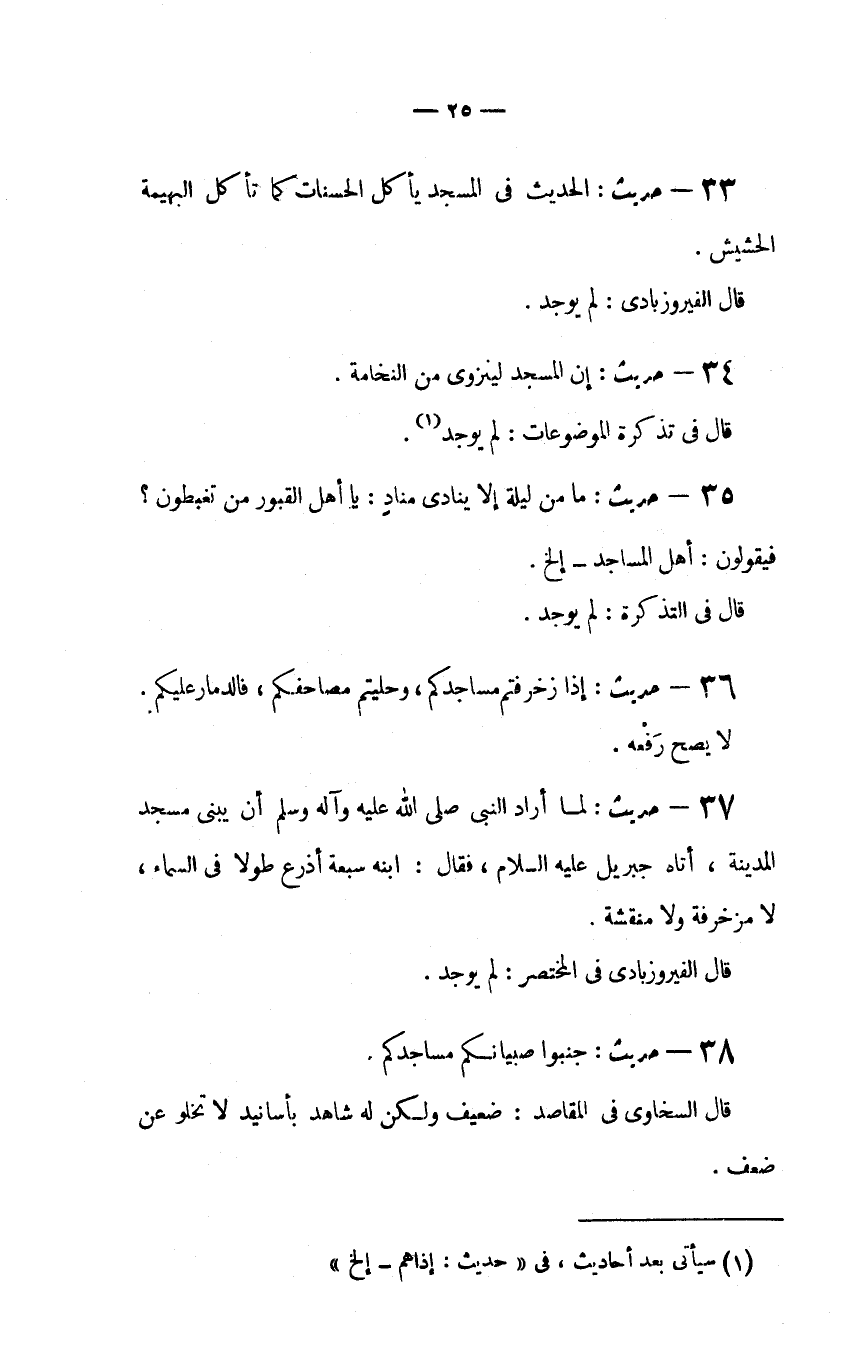 — ٢٥ —
٣٣ — حديث : الحديث فى المسجد يأكل الحسنات كما تأكل البهيمة
الحشيش .
قال الفيروزبادى : لم يوجد .
٣٤ — حديث : إن المسجد لينزوى من النخامة .
قال فى تذكرة الموضوعات : لم يوجد (١) .
٣٥ — حديث : ما من ليلة إلا ينادى منادٍ : يا أهل القبور من تغبطون ؟
فيقولون : أهل المساجد – إلخ .
قال فى التذكرة : لم يوجد .
٣٦ — حديث : إذا زخرفتم مساجدكم ، وحليتم مصاحفكم ، فالدمار عليكم .
لا يصح رَفْعه .
٣٧ — حديث : لما أراد النبى صلى الله عليه وآله وسلم أن يبنى مسجد
المدينة ، أتاه جبريل عليه السلام ، فقال : ابنه سبعة أذرع طولا فى السماء ،
لا مزخرفة ولا منقشة .
قال الفيروزبادى فى المختصر : لم يوجد .
٣٨ — حديث : جنبوا صبيانكم مساجدكم .
قال السخاوى فى المقاصد : ضعيف ولكن له شاهد بأسانيد لا تخلو عن
ضعف .
(١) سيأتى بعد أحاديث ، فى « حديث : إذاهم – إلخ »